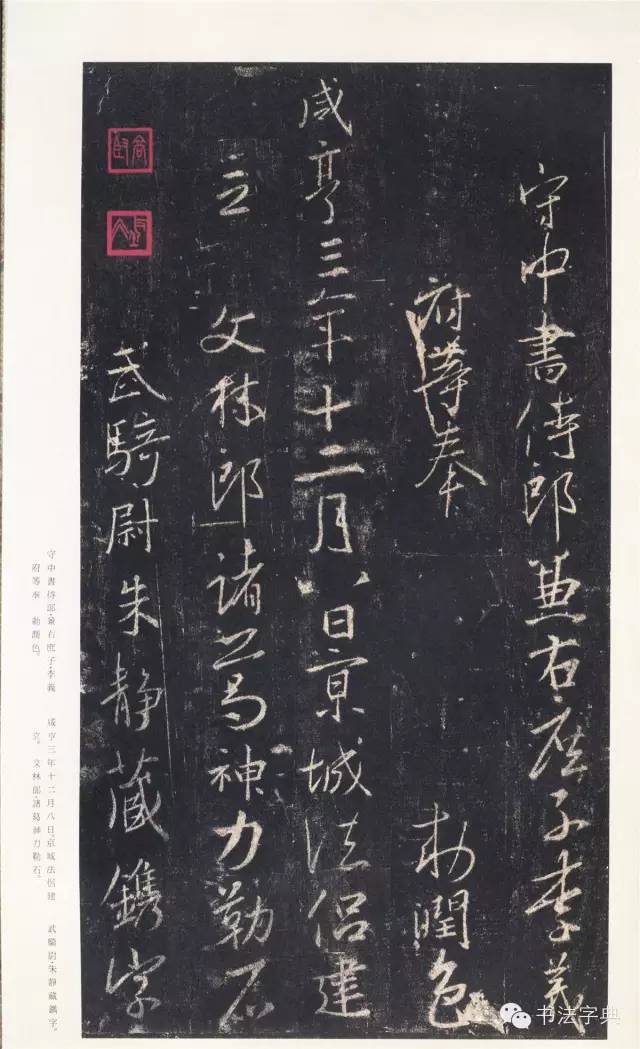 守中書侍郎兼右庶子李義
府等奉 勅潤色
咸亨三年十二月八日京城法侶建
立 文林郎諸葛神力勒石
武騎尉朱靜藏鐫字
守中書侍郎·兼右庶子·李義
府等奉 勅潤色。
咸亨三年十二月八日。京城法侶建
立。文林郎·諸葛神力勒石。
武騎尉·朱靜藏鐫字。
书法字典